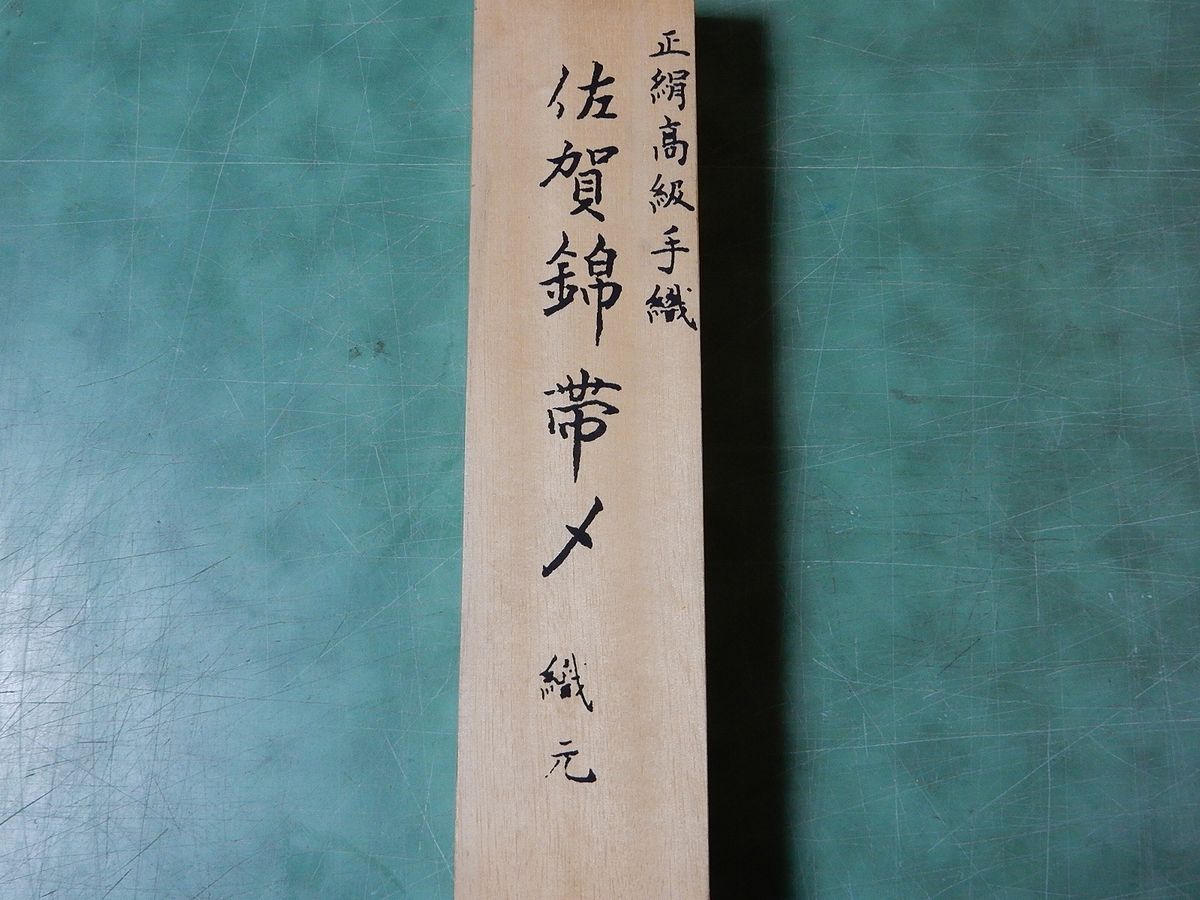 正絹高級手織
佐賀錦帯〆
織元